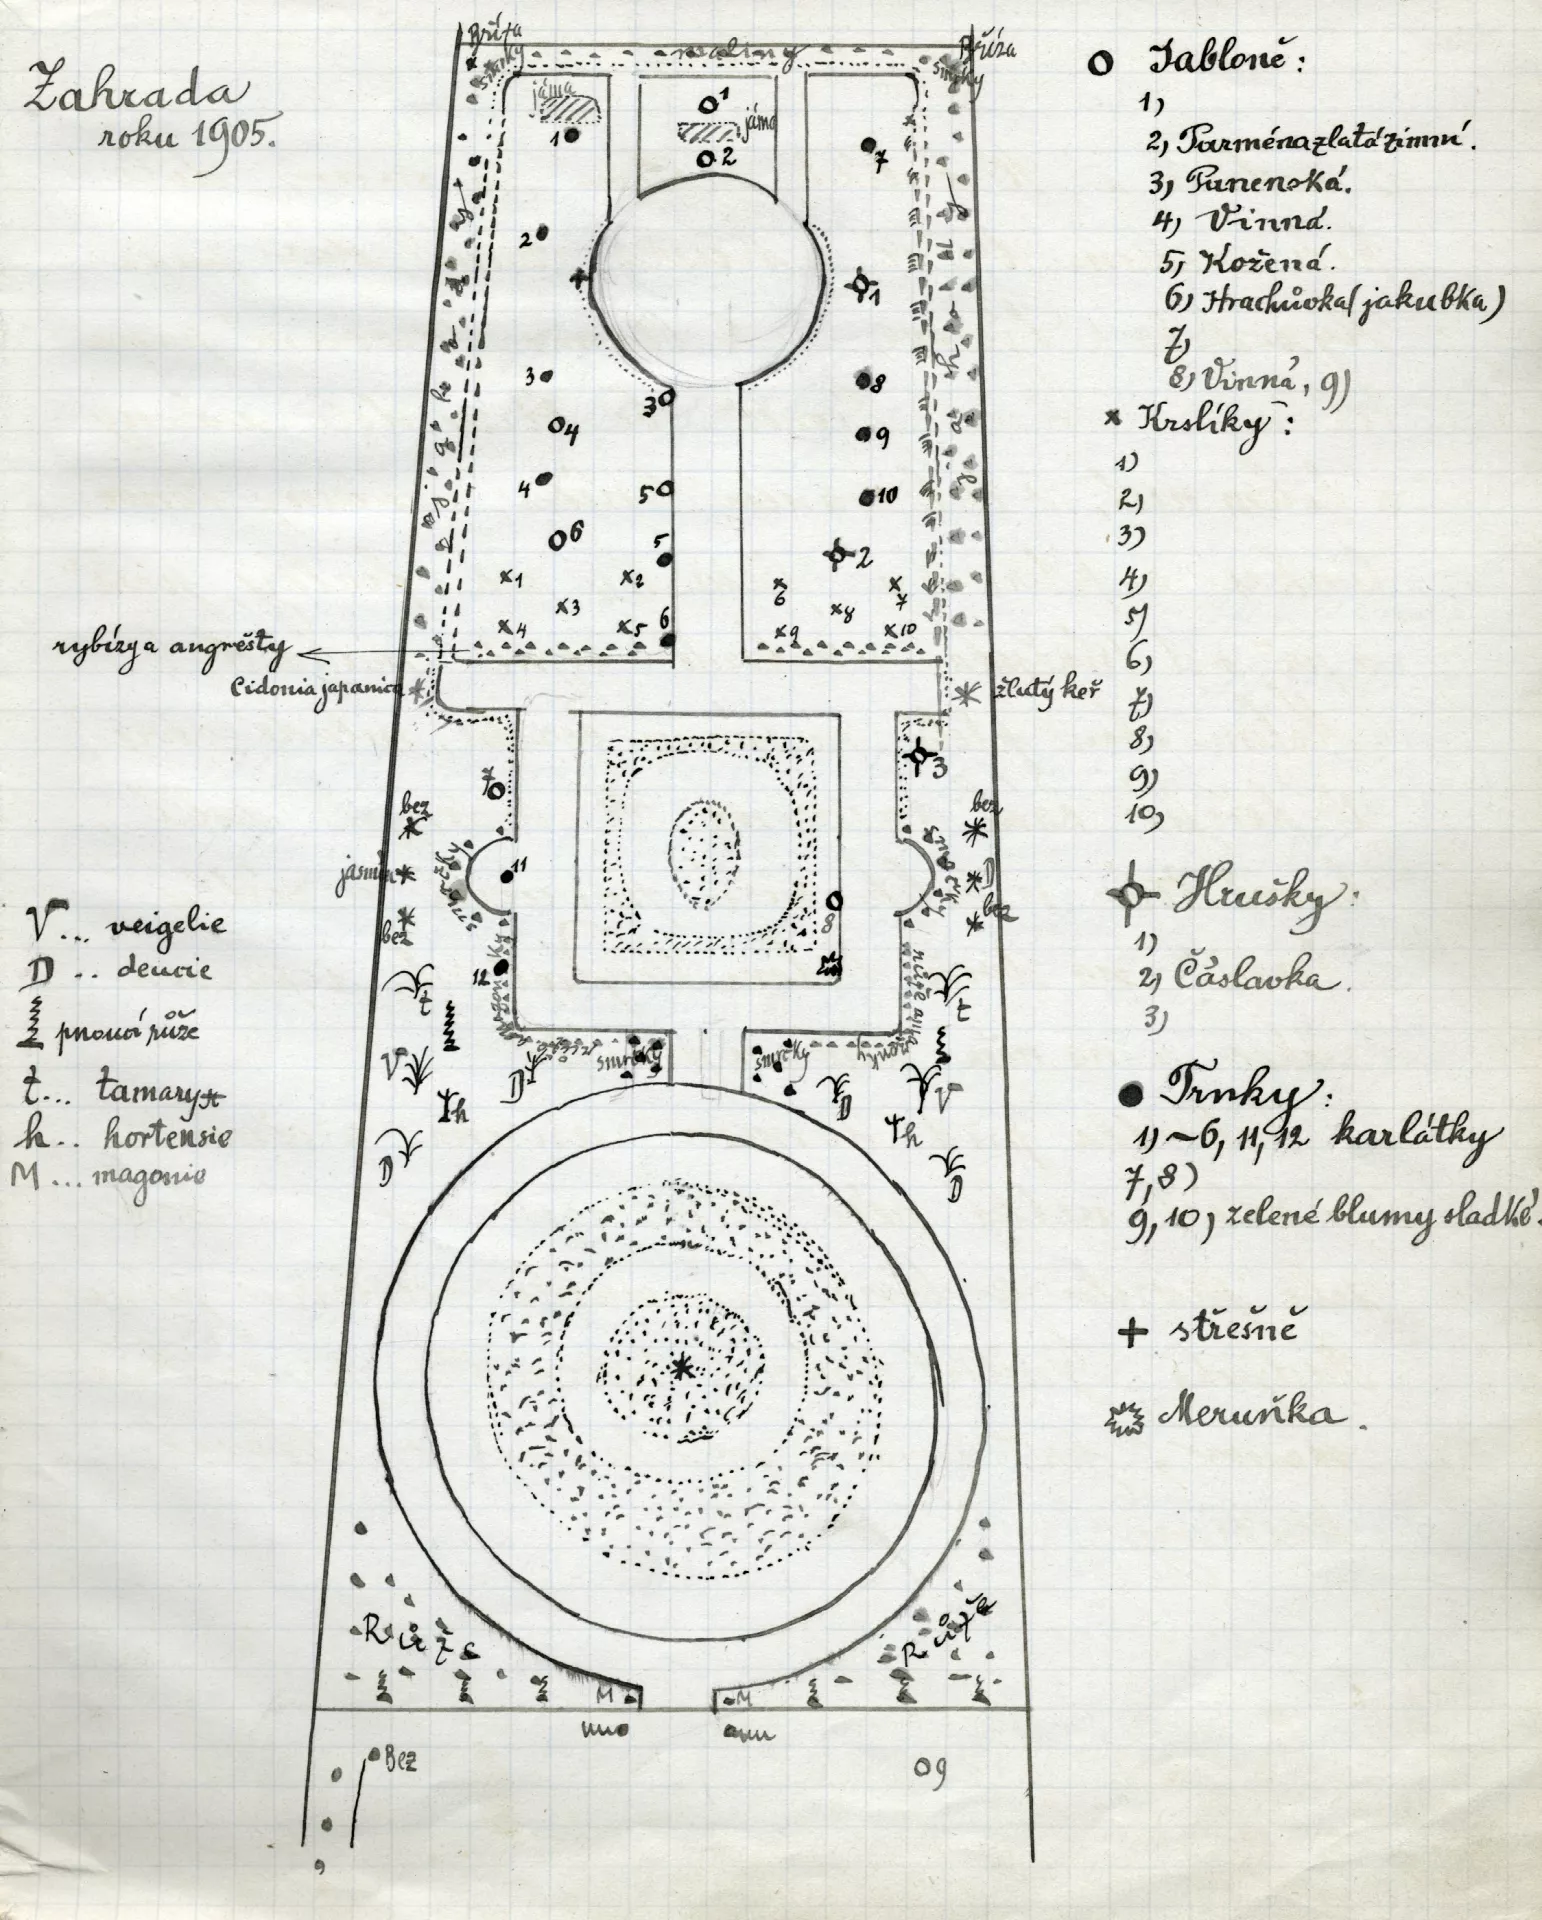 Zahrada
roku 1905.
Bříza
smrky
maliny
Bříza
smrky
jáma
1
jáma
1
2
7
2
1
3
3
8
4
9
4
5
10
6
5
2
x1
x2
6
7
x3
x8
x4
x5
6
x9
x10
rybízy a angrešty
Cidonia japanica
žlutý keř
7
3
bez
bez
jasmín
11
D
bez
bez
8
12
t
t
smrčky
smrčky
V
D
D
V
h
h
D
D
Růže
Růže
M
M
Bez
9
V... veigelie
D .. deucie
pnoucí růže
t... tamaryšt
h.. hortensie
M... magonie
Jabloně:
1)
2) Parména zlatá zimní.
3) Panenská.
4) Vinná.
5) Kožená.
6) Hrachůvka (jakubka)
7)
8) Vinná, 9)
x Krslíky:
1)
2)
3)
4)
5)
6)
7)
8)
9)
10)
Hrušky:
1)
2) Čáslavka.
3)
Trnky:
1) ~ 6, 11, 12 karlátky
7, 8)
9, 10) zelené blumy sladké.
+ střešně
Meruňka.